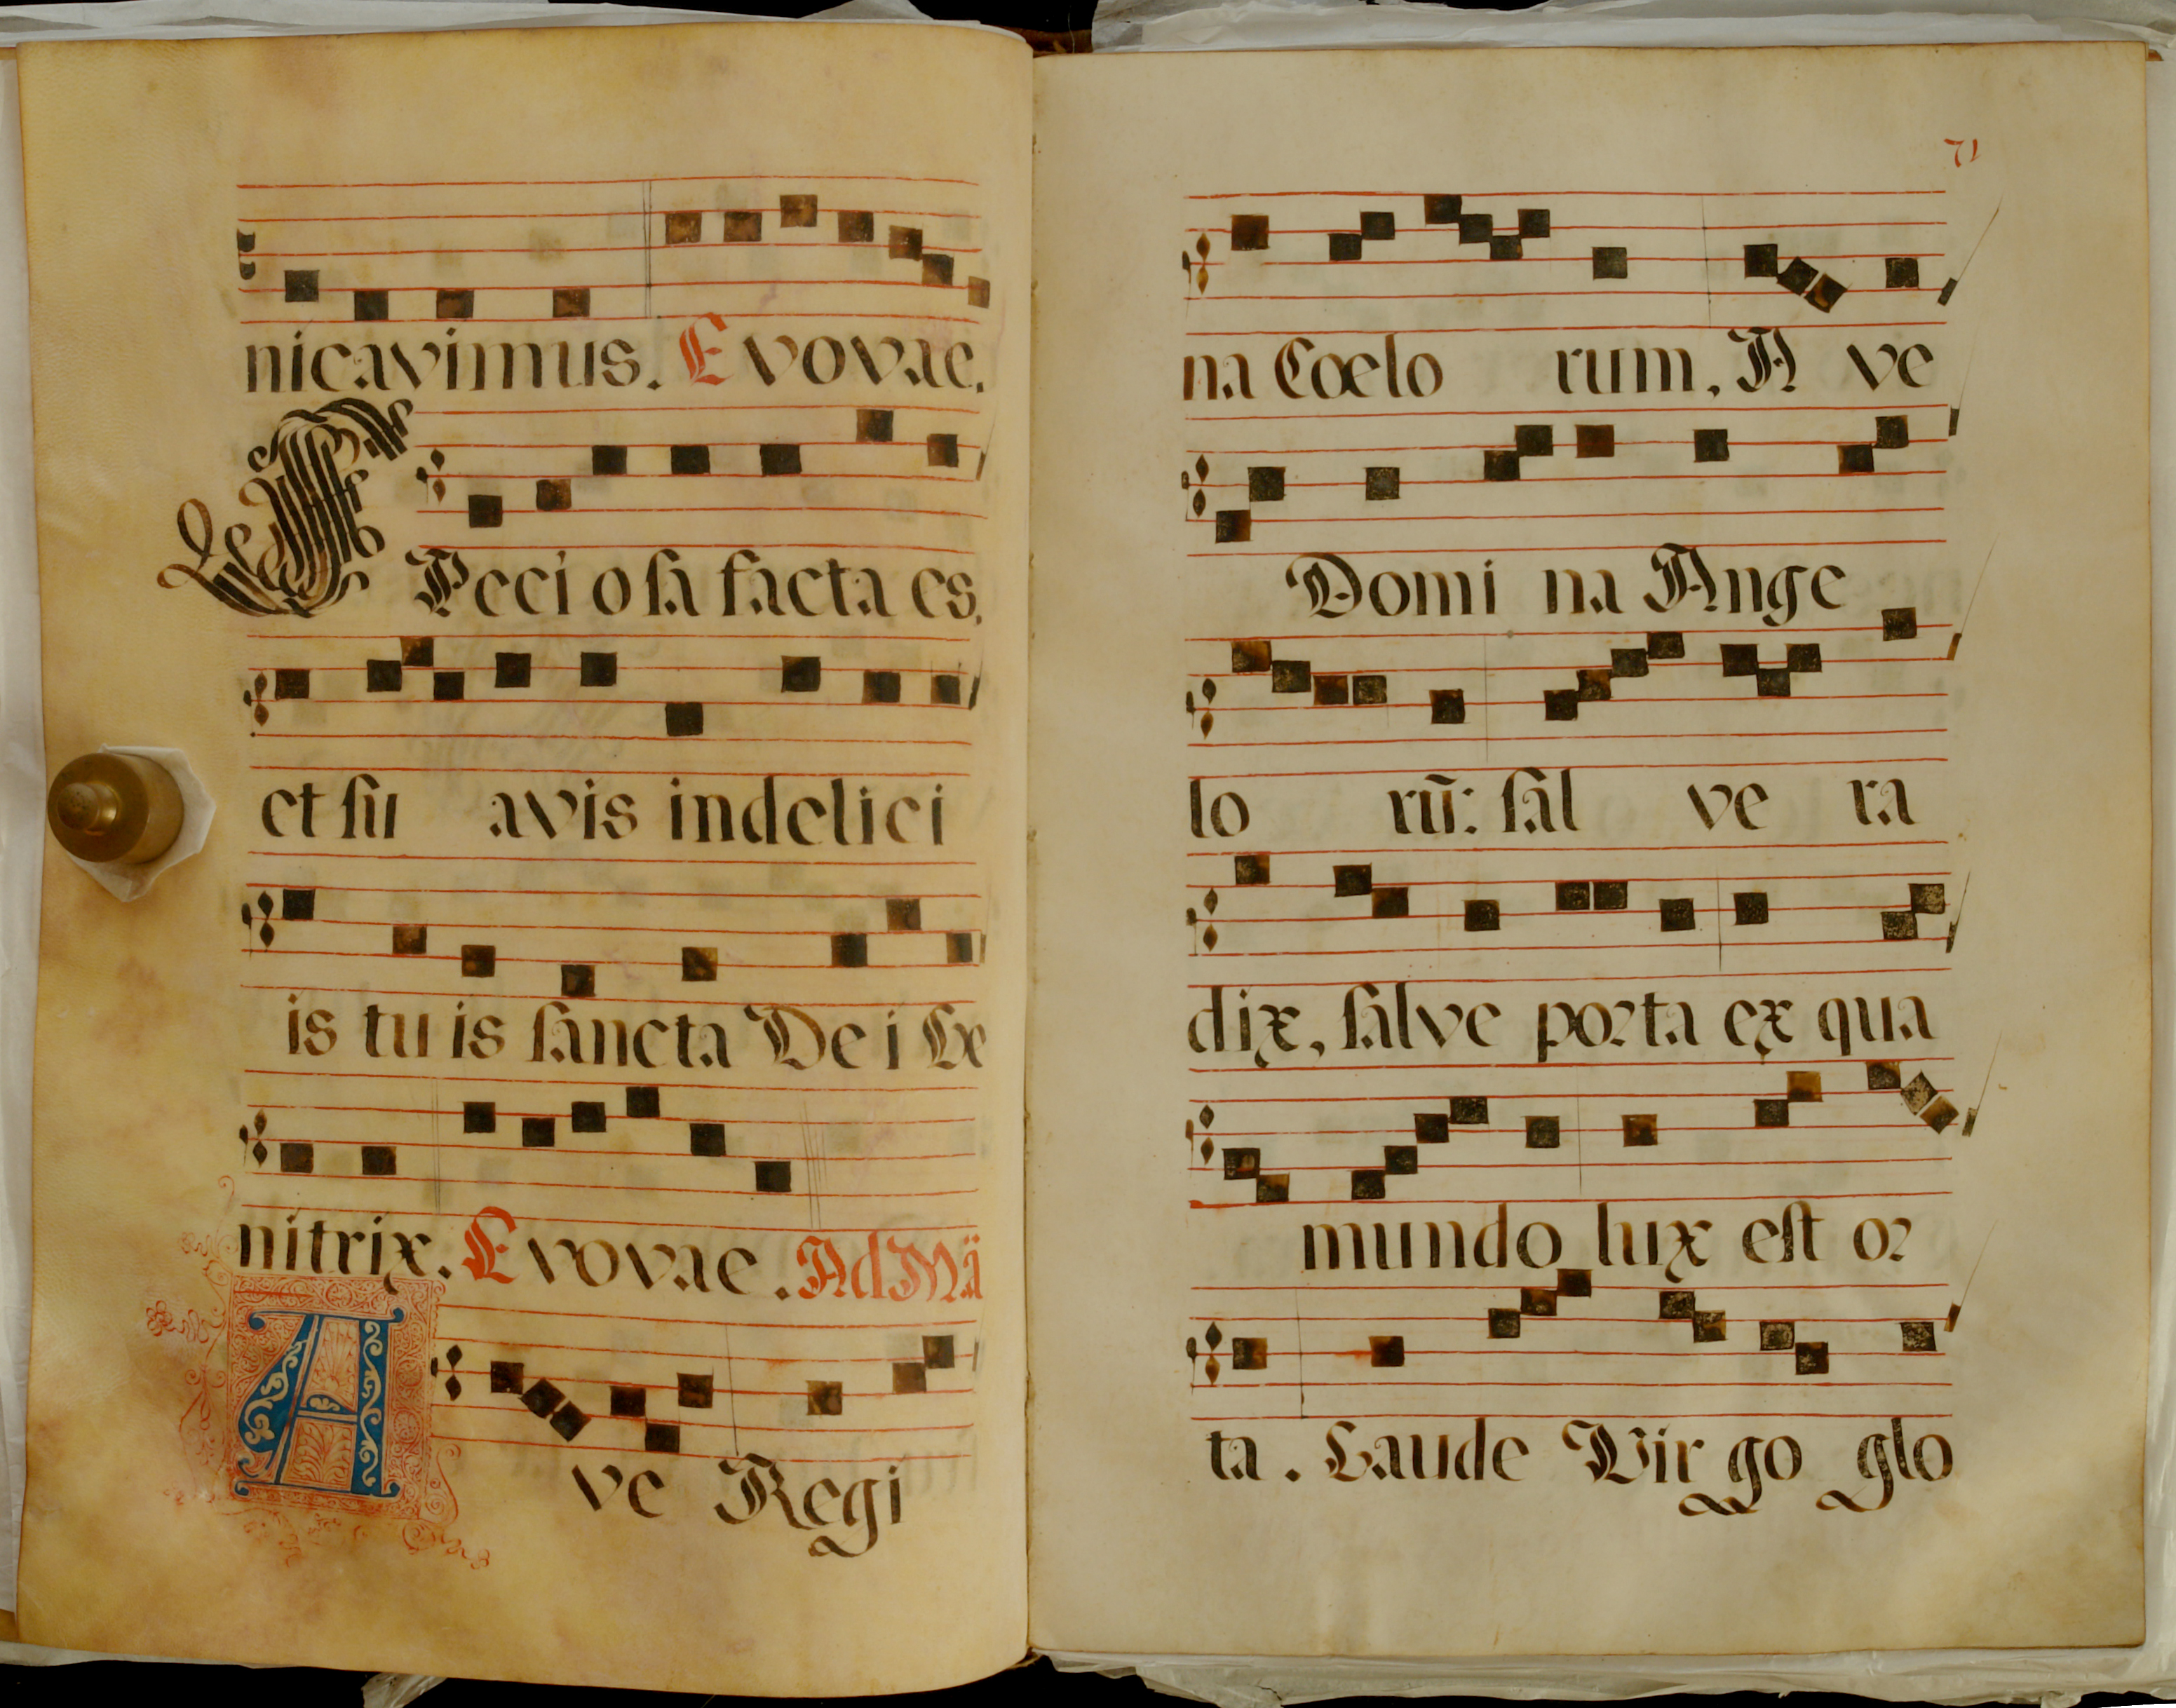 nicavimus. Evovae.
SPeci osa facta es,
et su avis indelici
is tuis sancta Dei Ge
nitrix. Evovae. Ad Mã
Ave Regi
71
na Coelo rum, A ve
Domi na Ange
lo rũ: sal ve ra
dix, salve porta ex qua
mundo lux est or
ta. Gaude Virgo glo